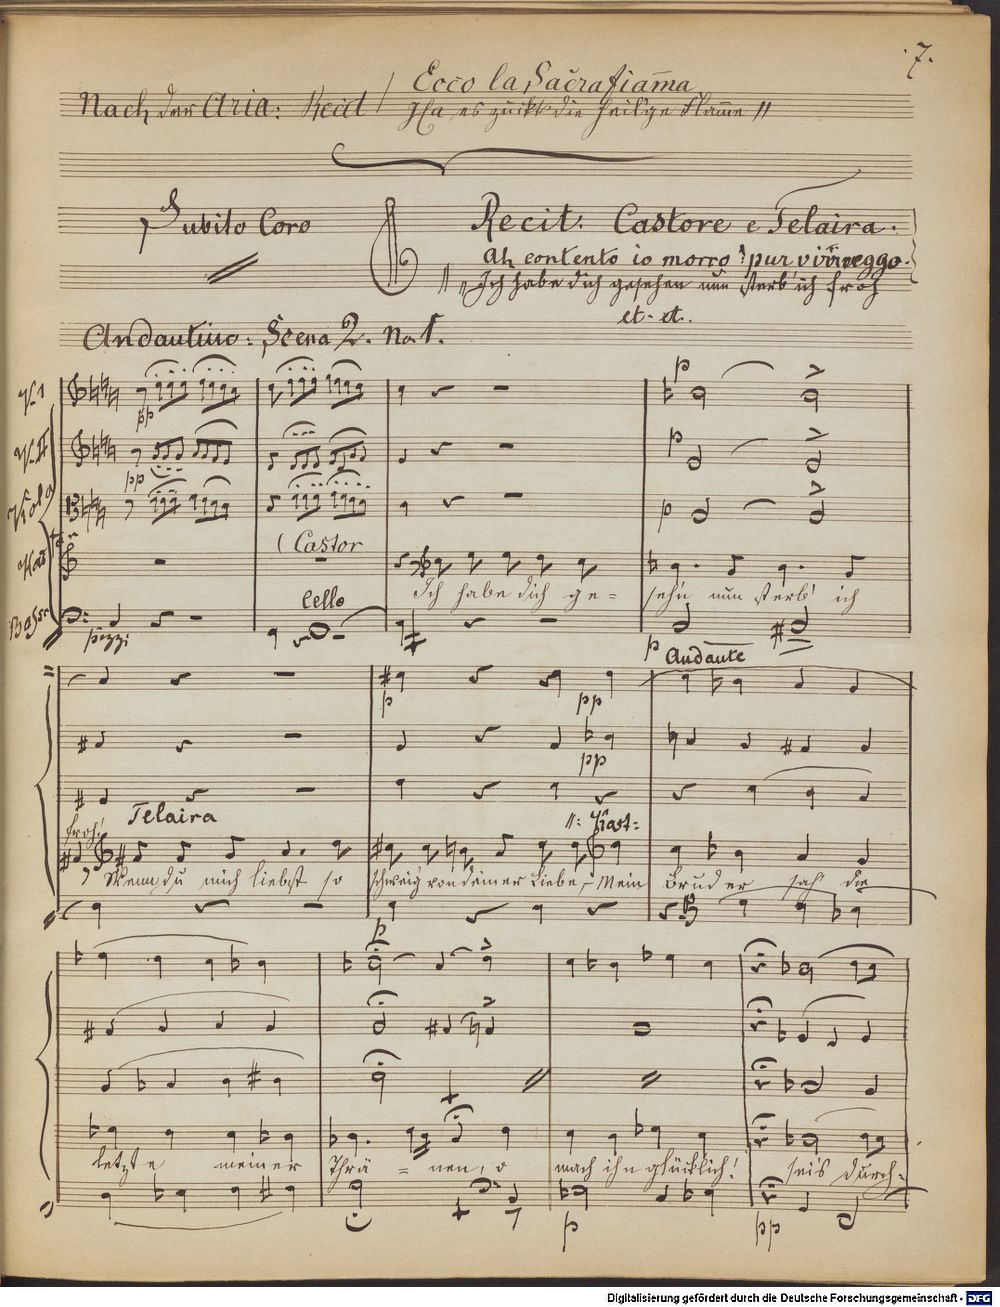 7.
Nach der Aria: Recit Ecco la Sacrafiam̄a
Ha es zuckt die Heil'ge Flam̄e
Subito Coro Recit: Castore e Telaira.
Ah contento io morro pur vi riveggo.
Ich habe dich gesehen nun sterb' ich froh
et. et.
Andantino: Scena 2. No. 1.
V. 1
pp
p
V. II
pp
p
Viola
p
(Castor
Ich habe dich ge= seh'n nun sterb' ich
Cello
Basso
pizzi
p
Andante
p
pp
pp
Telaira
Kast:
froh!
Wenn du mich liebst so schweig von deiner Liebe, Mein Bruder sah' die
p
letzte meiner Thrä = nen, o mach ihn glücklich! sei's durch=
p
pp
Digitalisierung gefördert durch die Deutsche Forschungsgemeinschaft - DFG